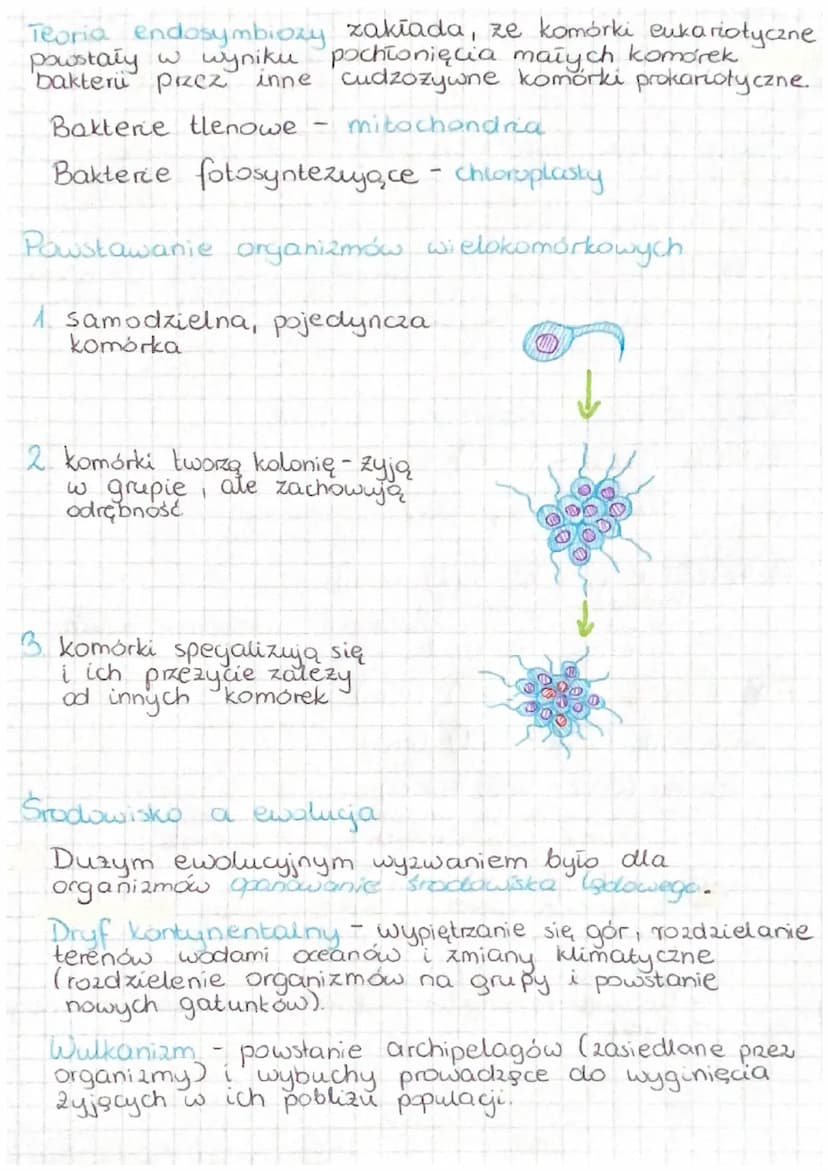 Teoria endosymbiozy zakłada, że komórki eukariotyczne
powstały w wyniku pochłonięcia małych komórek
bakterii przez inne cudzożywne komórki prokariotyczne.
Bakterie tlenowe - mitochondria
Bakterie fotosyntezujące - chloroplasty
Powstawanie organizmów wielokomórkowych
1. samodzielna, pojedyncza
komórka
2. komórki tworzą kolonię - żyją
w grupie, ale zachowują
odrębność
3. komórki specjalizują się
i ich przeżycie zależy
od innych komórek
Środowisko a ewolucja
Dużym ewolucyjnym wyzwaniem było dla
organizmów opanowanie środowiska lądowego.
Dryf kontynentalny - wypiętrzanie się gór, rozdzielanie
terenów wodami oceanów i zmiany klimatyczne
(rozdzielenie organizmów na grupy i powstanie
nowych gatunków).
Wulkanizm - powstanie archipelagów (zasiedlane przez
organizmy) i wybuchy prowadzące do wyginięcia
żyjących w ich pobliżu populacji.